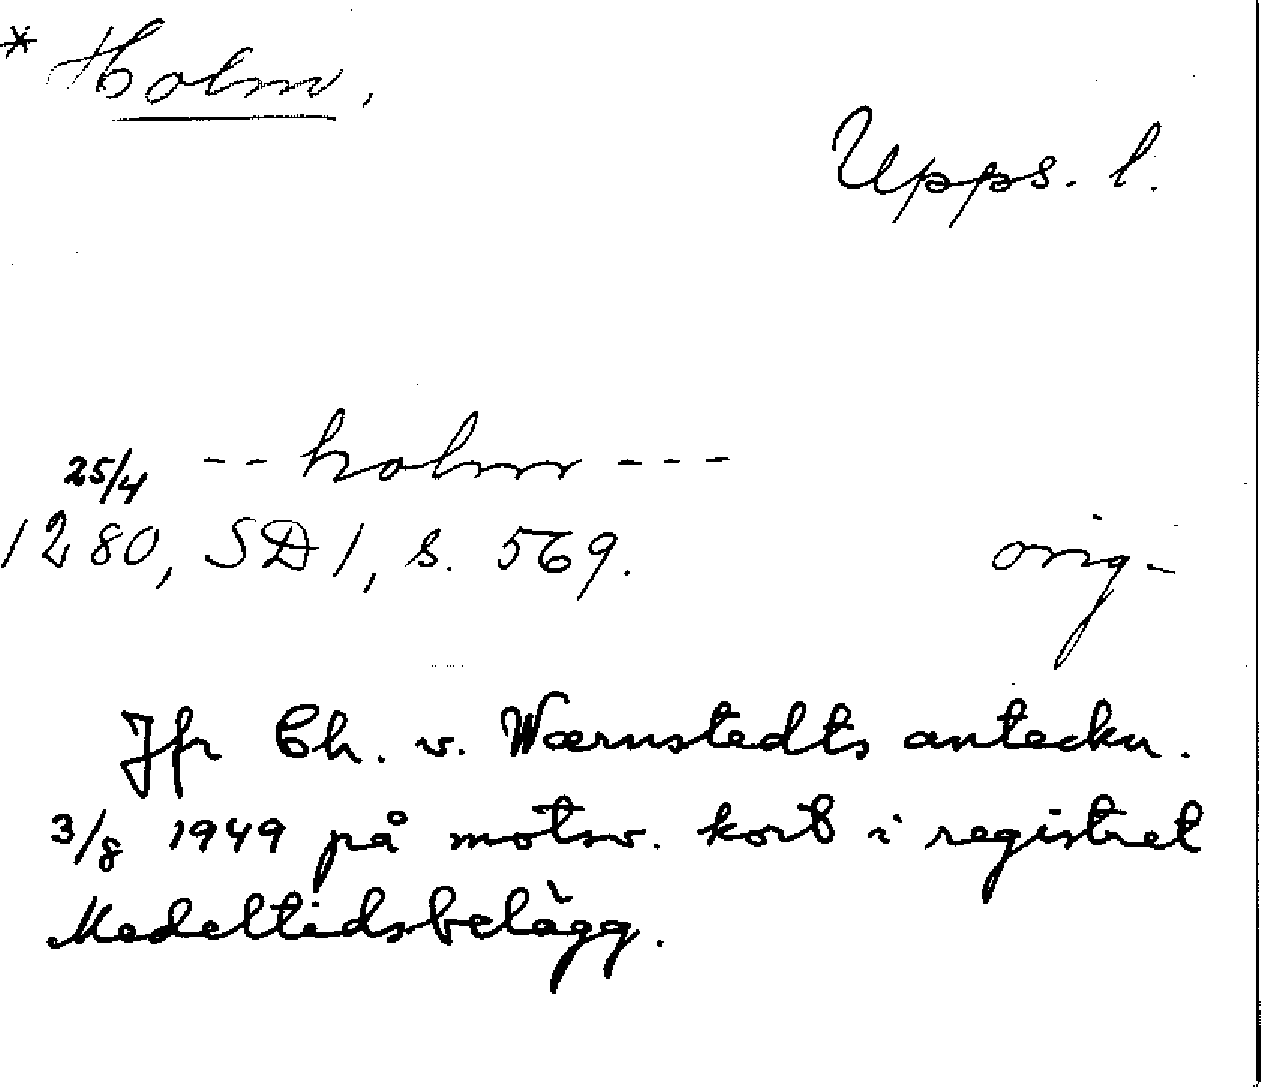 * Holm,
Upps. l.
-- holm ---
25/4
1280, SD 1, s. 569.
orig-
Jfr Ch. v. Wærnstedts anteckn.
3/8 1949 på motsv. kort i registret
Medeltidsbelägg.